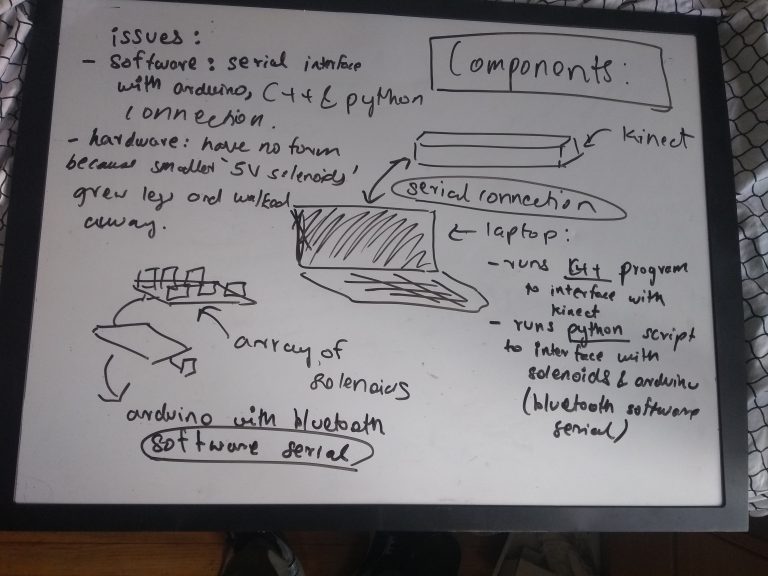 issues:
- software: serial interface
with arduino, C++ & python
connection.
- hardware: have no form
because smaller '5V solenoids'
grew legs and walked
away.
Components:
kinect
serial connection
laptop:
- runs C++ program
to interface with
kinect
- runs python script
to interface with
solenoids & arduino
(bluetooth software
serial)
array of
solenoids
arduino with bluetooth
software serial